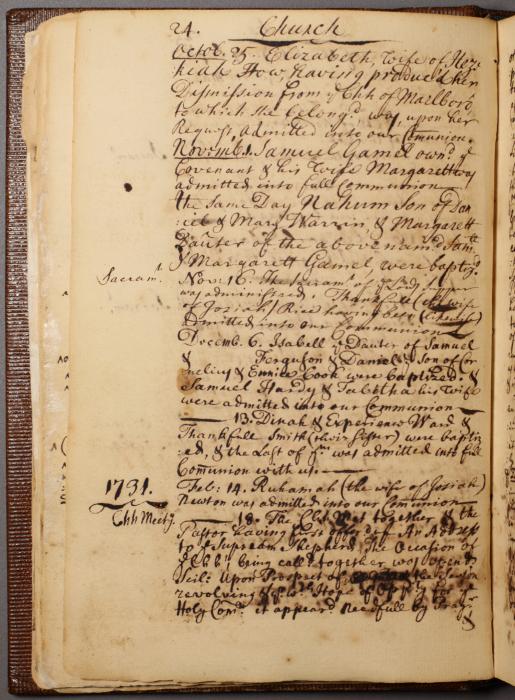 24. Church
Octob. 25. Elizabeth, Wife of Heze
kiah How having produced her
Dismission from ye Chh of Marlboro
to which she belong'd, was upon her
Request, admitted into our Comunion.
Novemb. 1. Samuel Gamel own'd ye
Covenant & his Wife Margarett was
admitted into full Communion
the same Day Nahum Son of Dan
:iel & Mary Warrin, & Margarett
Dauter of the above nam'd Saml
& Margarett Gamel, were baptiz'd.
Sacramt. Nov: 16. The Sacramt of ye Lds Supper
was administered. Thankfull (the wife
of Josiah Rice having been
admitted into our Communion
Decemb. 6. Isabell ye Dauter of Samuel
& Ferguson & Daniel ye Son of Cor
:nelius & Eunice Cook were baptized. &
Samuel Hardy & Tabitha his Wife
were admitted into our Communion
13. Dinah & Experience Ward &
Thankfull Smith (their sister) were baptiz
:ed, & the Last of ym was admitted into full
Comunion with us.
1731. Feb: 14. Ruhamah (the wife of Josiah)
Newton was admitted into our Comunion
Chh Meetg. 18. The Chh Met together & the
Pastor having first offer'd An Adress
to ye Supream Shepherd, The Occasion of
ye Chhs being call'd together was open'd
Scil: Upon Prospect of the Season
revolving
Holy Comn: it appear'd needfull by
&